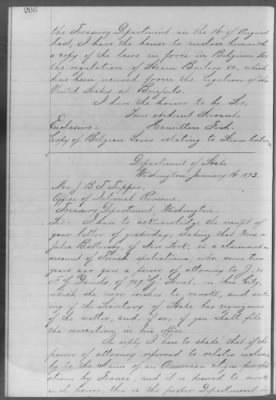 206
the Treasury Department on the 16 of August
last, I have the honor to enclose herewith
a copy of the laws in force in Belgium for
the regulation of Steam Boilers &c, which
has been received from the Legation of the
United States at Brussels.
I have the honor to be Sir,
Your obedient Servant
Enclosure Hamilton Fish.
Copy of Belgian Laws relating to Steam
Department of State
Washington January 16, 1873.
Office of Internal Revenue
Treasury Department, Washington.
Sir: I have to acknowledge the receipt of
your letter of yesterday, stating that Mrs.
Julia of New York, is a claimant on
account of French spoliations, who some two
years ago gave a power of attorney to J. &
of this City,
which she now wishes to revoke, and
if the Secretary of State has cognizance
of the matter, and if so, if you shall file
the revocation in his office.
In reply I have to state that if the
power of attorney referred to relates solely
to the claim of an American
by France, and it is desired to
such power, this is the proper Department